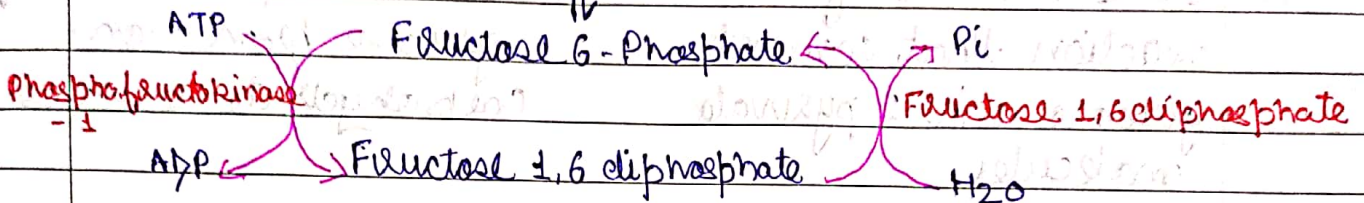 ATP Fructose 6-Phosphate Pi
Phosphofructokinase Fructose 1,6 diphosphate
-1
ADP Fructose 1,6 diphosphate H2O